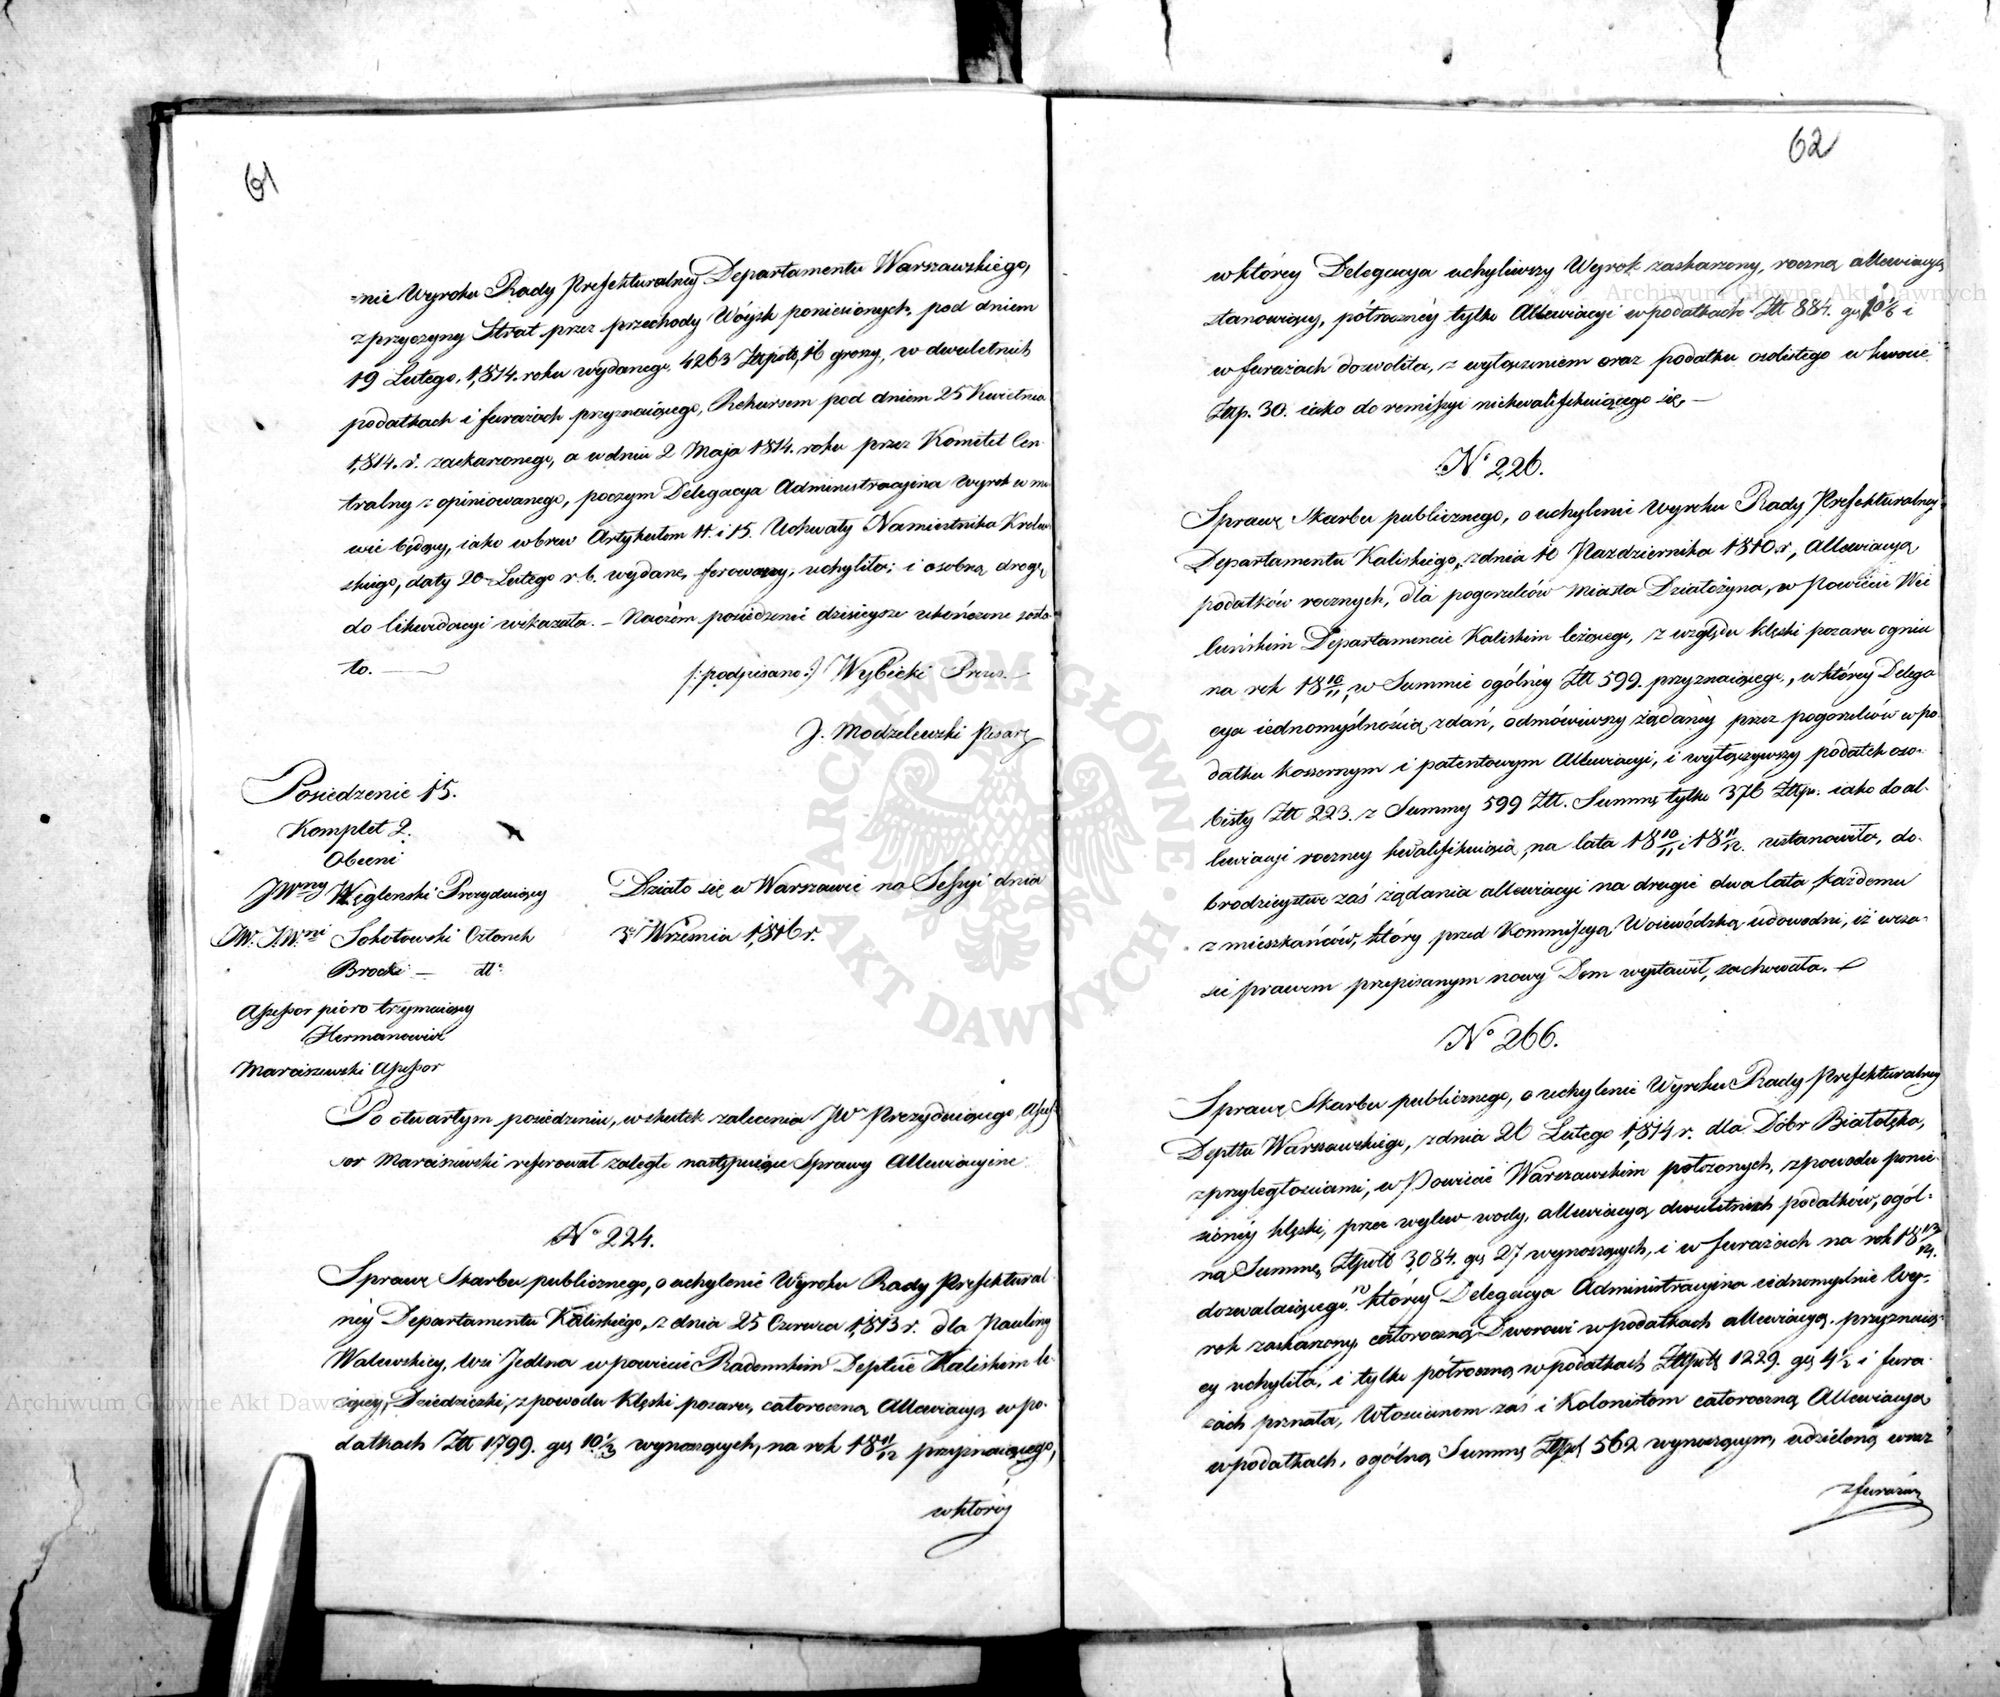 61
=nie Wyroku Rady Prefekturalney Departamentu Warszawskiego,
z przyczyny Strat przez przechody Wóysk poniesionych, pod dniem
19 Lutego, 1,814. roku wydanego, 4263 Złpols, 16 groszy, w dwuletnich
podatkach i furażach przyznaiącego, Rekursem pod dniem 25 Kwietnia
1,814. r. zaskarzonego, a w dniu 2 Maja 1814. roku przez Komitet Cen-
tralny zopiniowanego, poczym Delegacya Administracyina Wyrok w mo
wie będący, iako wbrew Artykułom 11. i 15. Uchwały Namiestnika Królew
skiego, daty 20 Lutego r. b. wydane, ferowany, uchyliła; i osobną drogę
do likwidacyi wskazała. – Naczém posiedzenié dzisieysze ukończone zosta-
ło. —
/: podpisano :/ Wybicki Prezes. –
J. Modzelewski Pisarz
Posiedzenie 15.
Komplet 2.
Obecni
JWny Węglenski Prezyduiący
JW. JW.ni Sokołowski Członek
Brocki — dto
Assessor pióro trzymaiący
Hermanowicz
Marciszewski Assessor
Działo się w Warszawie na Sessyi dnia
3o Września 1,816 r.
Po otwartym posiedzeniu, w skutek zalecenia JWo Prezyduiącego, Asses-
sor Marciszewski referował zaległe następuiące Sprawy Allewiacyine
No 224.
Sprawę Skarbu publicznego, o uchylenie Wyroku Rady Prefektural-
néy Departamentu Kaliskiego, z dnia 25 Czerwca 1,813 r. dla Pauliny
Walewskiey, Wsi Jedlna w powiecie Radomskim Deptcie Kaliskim le-
żącey, Dziedziczki, z powodu klęski pożaru, całoroczną Allewiacyą w po-
datkach Złt 1799. gr 10 1/3 wynoszących, na rok 18 11/12 przyznaiącego,
w któréy
62
w któréy Delegacya uchyliwszy Wyrok zaskarzony, roczną allewiacyą
stanowiący, półrocznéy tylko Allewiacyi w podatkach Złt 884. gr 10 1/6 i
w furażach dozwoliła, z wyłączeniem oraz podatku osobistego w kwocie
Złtp. 30. iako do remissyi niekwalifikuiącego się. —
No 226.
Sprawę Skarbu publicznego, o uchylenie Wyroku Rady Prefekturalnej
Departamentu Kaliskiego, z dnia 10 Pazdziernika 1810 r, Allewiacyą
podatków rocznych, dla pogorzelców Miasta Działoszyna, w Powiecie Wie
luńskim Departamencie Kaliskim leżącego, z względu klęski pożaru ognia
na rok 18 10/11, w Summie ogólnéy Złt 599. przyznaiącego, w któréy Delega
cya iednomyślnością zdań, odmówiwszy żądanéy przez pogorzelców w po-
datku koszernym i patentowym Allewiacyi, i wyłączywszy podatek oso-
bisty Złt 223. z Summy 599 Złt. Summę tylko 376 Złtp. iako do al-
lewiacyi roczney kwalifikuiącą, na lata 18 10/11 i 18 11/12. ustanowiła, do-
brodzieystwo zaś żądania allewiacyi na drugie dwa lata każdemu
z mieszkańców, który przed Kommissyą Woiewódzką udowodni, iż w cza-
sie prawem przepisanym nowy Dom wystawił, zachowała. –
No 266.
Sprawę Skarbu publicznego, o uchylenie Wyroku Rady Prefekturalney
Depttu Warszawskiego, z dnia 26 Lutego 1,814 r. dla Dóbr Białołęka,
z przyległościami, w Powiecie Warszawskim położonych, z powodu ponie-
sionéy klęski, przez wylew wody, allewiacyą dwuletnich podatków, ogól-
ną Summę Złpols 3,084. gr 27 wynoszących, i w furażach na rok 18 13/14.
dozwalaiącego. w któréy Delegacya Administracyina iednomyślnie Wy-
rok zaskarzony, całoroczną Dworowi w podatkach allewiacyą przyznaią-
cy uchyliła, i tylko półroczną w podatkach Złtpols 1229. gr 4 1/2 i fura-
żach przyznała, Włościanom zaś i Kolonistom całoroczną Allewiacyą
w podatkach, ogólną Summę Złtpol 562 wynoszącym, udzieloną wraz
z furażem